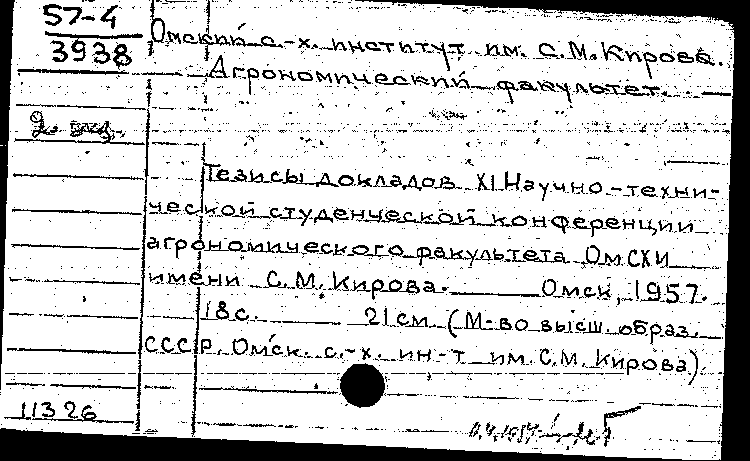 57-4
3938
Омский с.-х. институт им. С.М.Кирова.
Агрономический факультет.
2 экз.
Тезисы докладов XI Научно-техни-
ческой студенческой конференции
агрономического факультета ОмСХИ
имени С.М.Кирова. Омск, 1957.
18с. 21см (М-во высш. образ.
СССР. Омск. с.-х. ин-т им. С.М.Кирова).
11326